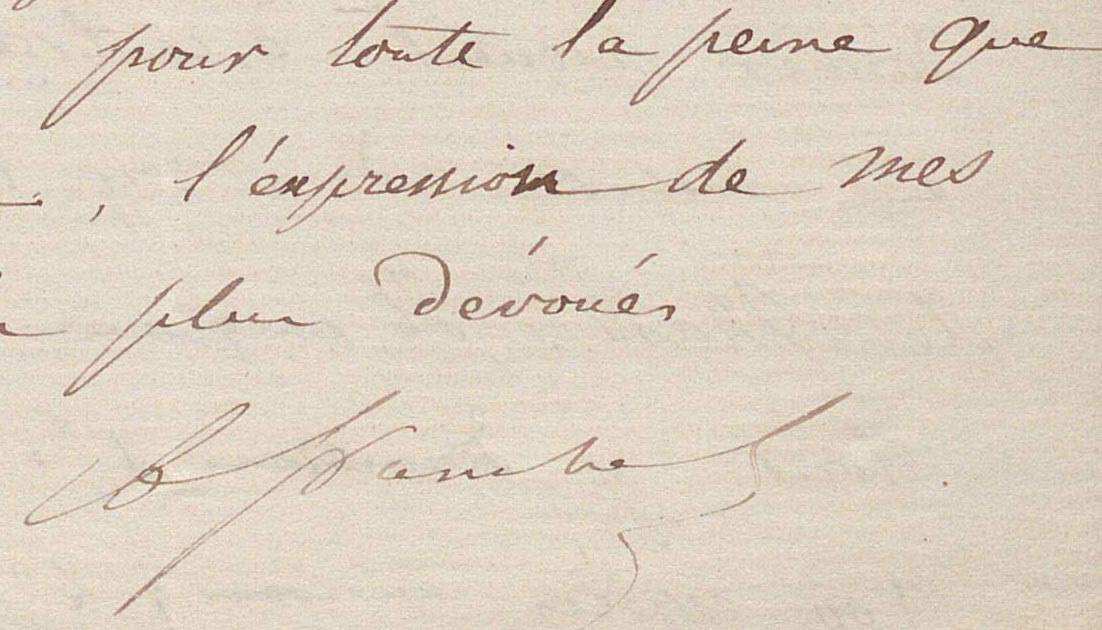 pour toute la peine que
, l'expression de mes
plus dévoués